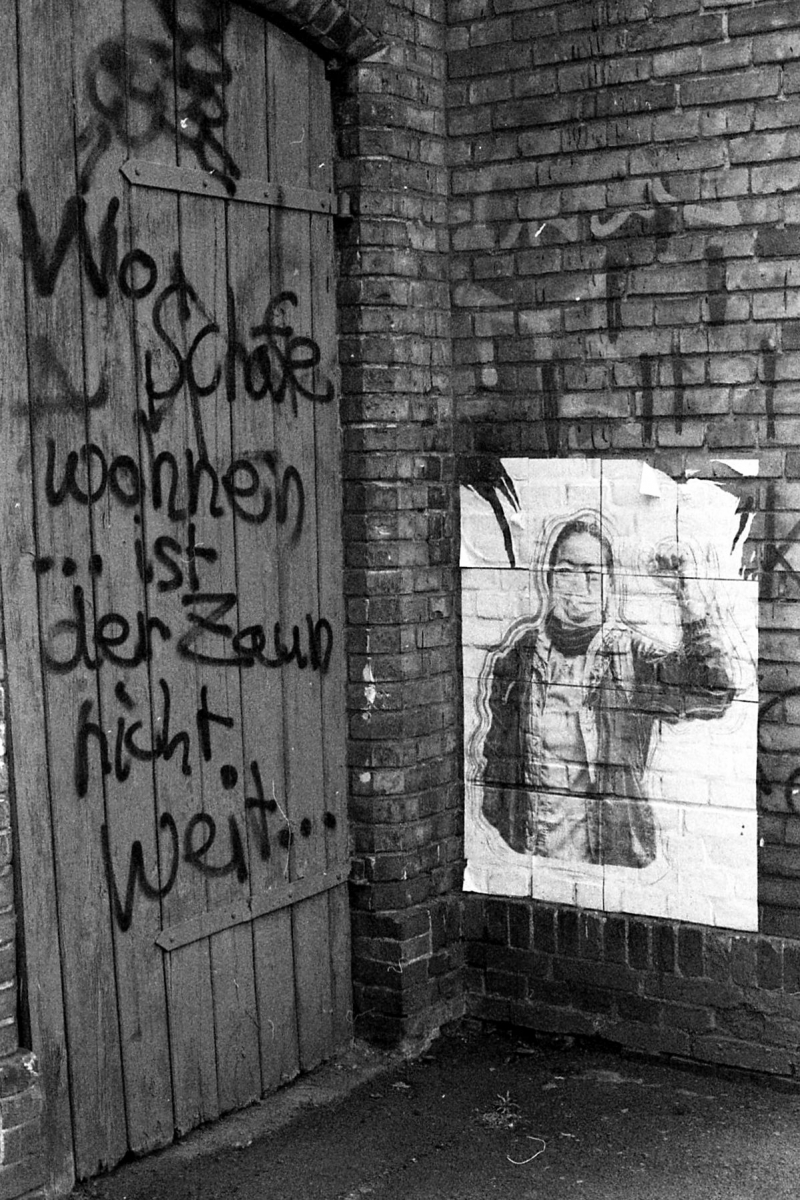 Wo
Schafe
wohnen
... ist
der Zaun
nicht
weit...